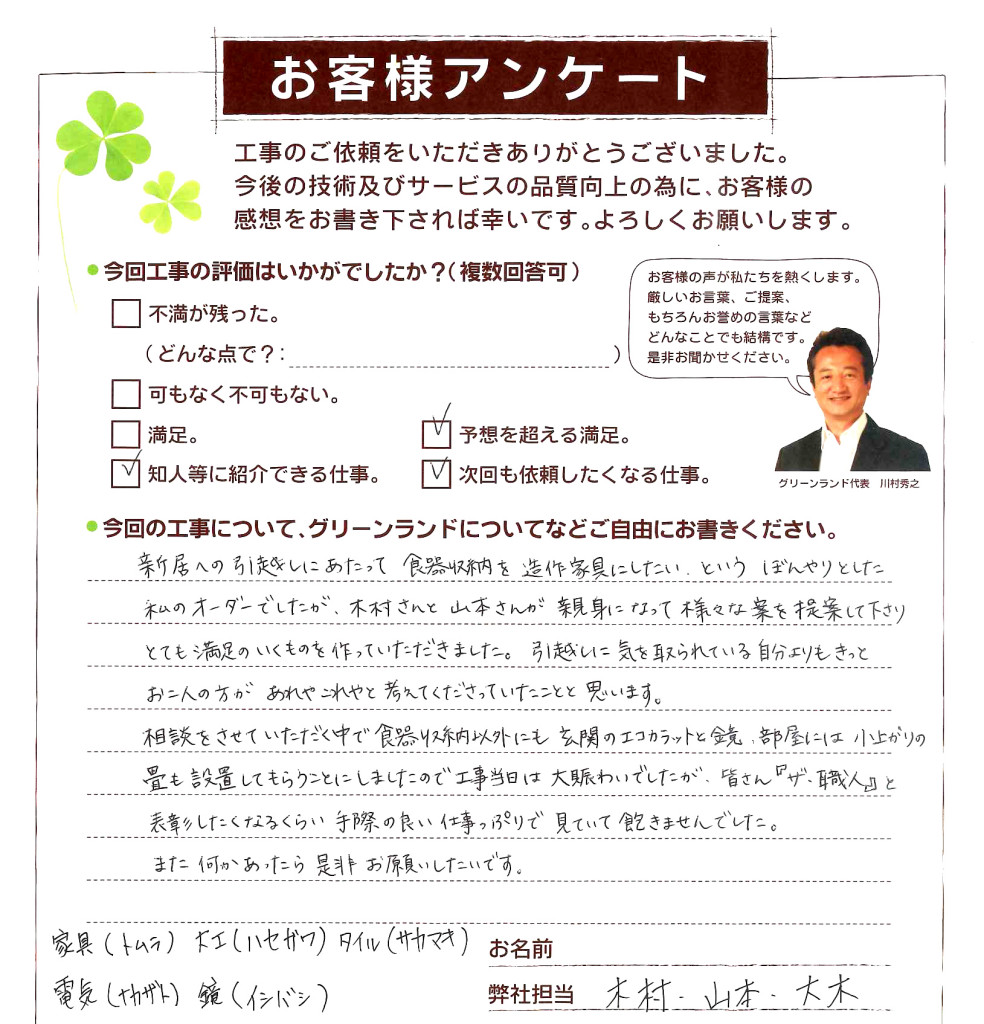 お客様アンケート
工事のご依頼をいただきありがとうございました。
今後の技術及びサービスの品質向上の為に、お客様の
感想をお書き下されば幸いです。よろしくお願いします。
●今回工事の評価はいかがでしたか？（複数回答可）
お客様の声が私たちを熱くします。
厳しいお言葉、ご提案、
もちろんお誉めの言葉など
どんなことでも結構です。
是非お聞かせください。
不満が残った。
（どんな点で？： ）
可もなく不可もない。
満足。
✓ 予想を超える満足。
✓ 知人等に紹介できる仕事。
✓ 次回も依頼したくなる仕事。
グリーンランド代表 川村秀之
●今回の工事について、グリーンランドについてなどご自由にお書きください。
新居への引越しにあたって 食器収納を 造作家具にしたい、という ぼんやりとした
私のオーダーでしたが、木村さんと 山本さんが 親身になって 様々な案を提案して下さり
とても満足のいくものを作っていただきました。引越しに気を取られている自分よりもきっと
お二人の方が あれやこれやと 考えてくださっていたことと 思います。
相談をさせていただく中で食器収納以外にも 玄関のエコカラットと鏡、部屋には 小上がりの
畳も設置してもらうことにしましたので工事当日は 大賑わいでしたが、皆さん『ザ・職人』と
表彰したくなるくらい 手際の良い 仕事っぷりで 見ていて 飽きませんでした。
また 何かあったら 是非 お願いしたいです。
家具（トムラ） 大工（ハセガワ） タイル（サカマキ）
電気（ナカザト） 鏡（イシバシ）
お名前
弊社担当 木村・山本・大木